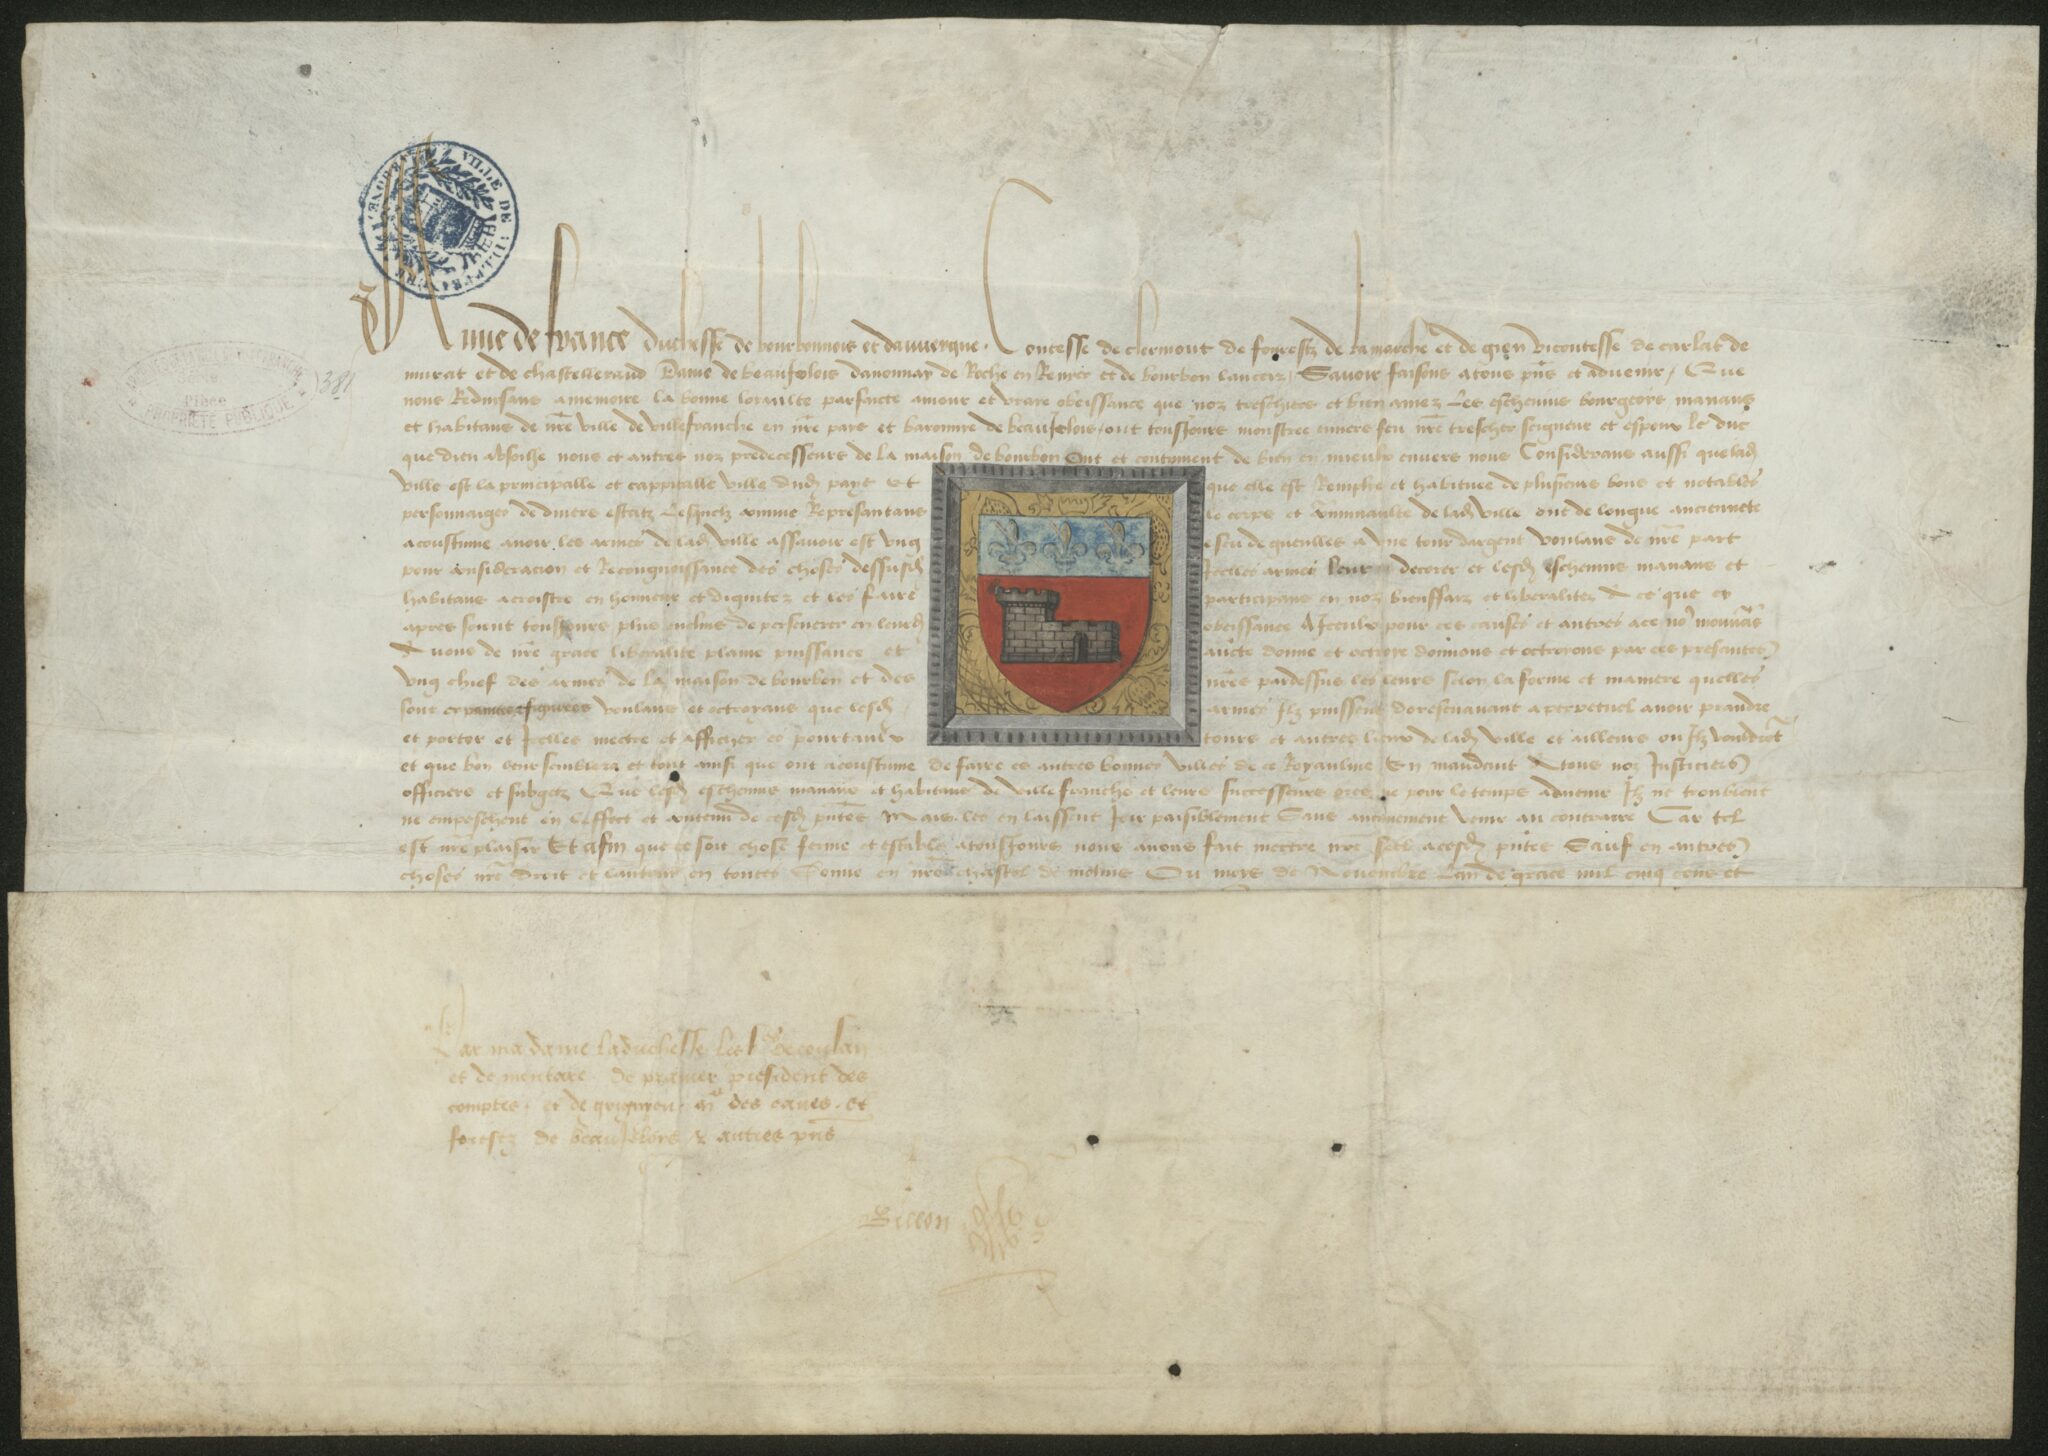 VILLE DE VILLEFRANCHE
PROPRIÉTÉ PUBLIQUE
381
Anne de france duchesse de bourbonnois et dauvergne. Contesse de clermont de fourestz de lamarche et de gien vicontesse de carlat de
murat et de chastelleraud Dame de beaujelois dannonnay de Roche en Renyer et de bourbon lanceiz, Savoir faisons a tous pns et advenir, Que
nous Reduisans a memoire la bonne loyaulte parfaicte amour et vraye obeissance que noz treschiers et bien amez Les eschevins bourgeois manans
et habitans de nre ville de villefranche en nre pays et baronnie de beaujelois, ont tousjours monstree envers feu nre trescher seigneur et espoux le duc
que dieu absoille nous et autres noz predecesseurs de la maison de bourbon Ont et continuent de bien en mieulx envers nous Considerans aussi que lad
ville est la principalle et cappitalle ville dud pays et que elle est Remplie et habituee de plusieurs bons et notables
personnaiges de divers estatz Lesquelz comme Representans le corps et communaulte de lad ville ont de longue anciennete
acoustume avoir les armes de lad ville assavoir est ung escu de gueulles a une tour dargent voulans de nre part
pour consideracion et Recongnoissance des choses dessusd Icelles armes leur decorer et lesd eschevins manans et
habitans acroistre en honneur et dignitez et les faire participans en noz biensfaiz et liberalitez A ce que cy
apres soient tousjours plus enclins de perseverer en leurd obeissance A Iceulx pour ces causes et autres a ce no9 mouvans
Avons de nre grace liberalite plaine puissance et aucte donne et octroye donnons et octroyons par ces presentes
ung chief des armes de la maison de bourbon et des nres pardessus les leurs selon la forme et maniere quelles
sont cy painctes et figurees voulans et octroyans que lesd armes Ilz puissent doresenavant a perpetuel avoir prandre
et porter et Icelles mectre et afficher es pourtaulx tours et autres lieux de lad ville et ailleurs ou Ilz vouldront
et que bon leur semblera et tout ainsi que ont acoustume de faire es autres bonnes villes de ce Royaulme En mandant A tous noz Justiciers
officiers et subgetz Que lesd eschevins manans et habitans de villefranche et leurs successeurs pour le temps advenir Ilz ne troublent
ne empeschent en leffect et contenu de cesd pntes Mais les en laissent Joir paisiblement Sans aucunement venir au contraire Car tel
est nre plaisir Et afin que ce soit chose ferme et estable a tousjours nous avons fait mectre nre seel a cesd pntes Sauf en autres
choses nre droit et lautruy en toutes Donne en nre chastel de molins Ou moys de Novembre Lan de grace mil cinq cens et
Par madame la duchesse
et de montare. de premier president des
comptes. et de me des eaues. et
forestz de beaujelois, & autres pns
Billon